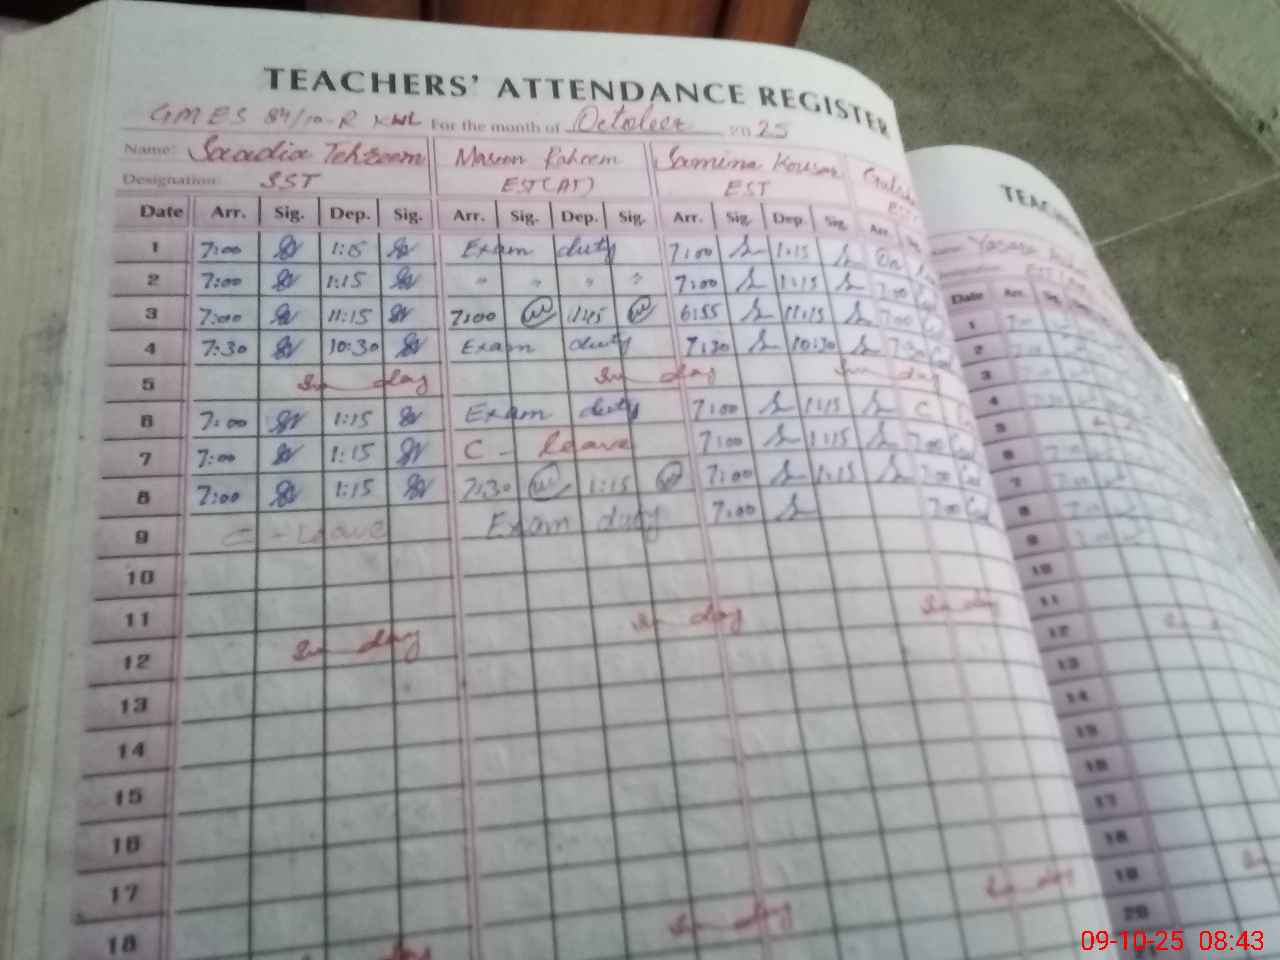 TEACHERS' ATTENDANCE REGISTER
GMES 84/10-R KWL For the month of October 2025
Name: Saadia Tehzeem Samina Kousar
Designation: SST EST(AT) EST
Date Arr. Sig. Dep. Sig. Arr. Sig. Dep. Sig. Arr. Sig. Dep. Sig. Arr.
1 7:00 1:15 Exam duty 7:00 1:15
2 7:00 1:15 " " " " 7:00 1:15 7:00
3 7:00 11:15 7:00 6:55 11:15 7:00
4 7:30 10:30 Exam duty 7:30 10:30 7:30
5 Sun day Sun day Sun day
6 7:00 1:15 Exam duty 7:00 1:15 C
7 7:00 1:15 C - leave 7:00 1:15 7:00
8 7:00 1:15 7:30 1:15 7:00 1:15 7:00
9 C - Leave Exam duty 7:00 7:00
10
11
12 Sun day Sun day Sun day
13
14
15
16
17
18
Sun day Sun day
day
TEACH
Date Arr. Sig.
1 7:00
2
3
4
5
6
7
8
9
10
11
12
13
14
15
16
17
18
19
20
21
09-10-25 08:43